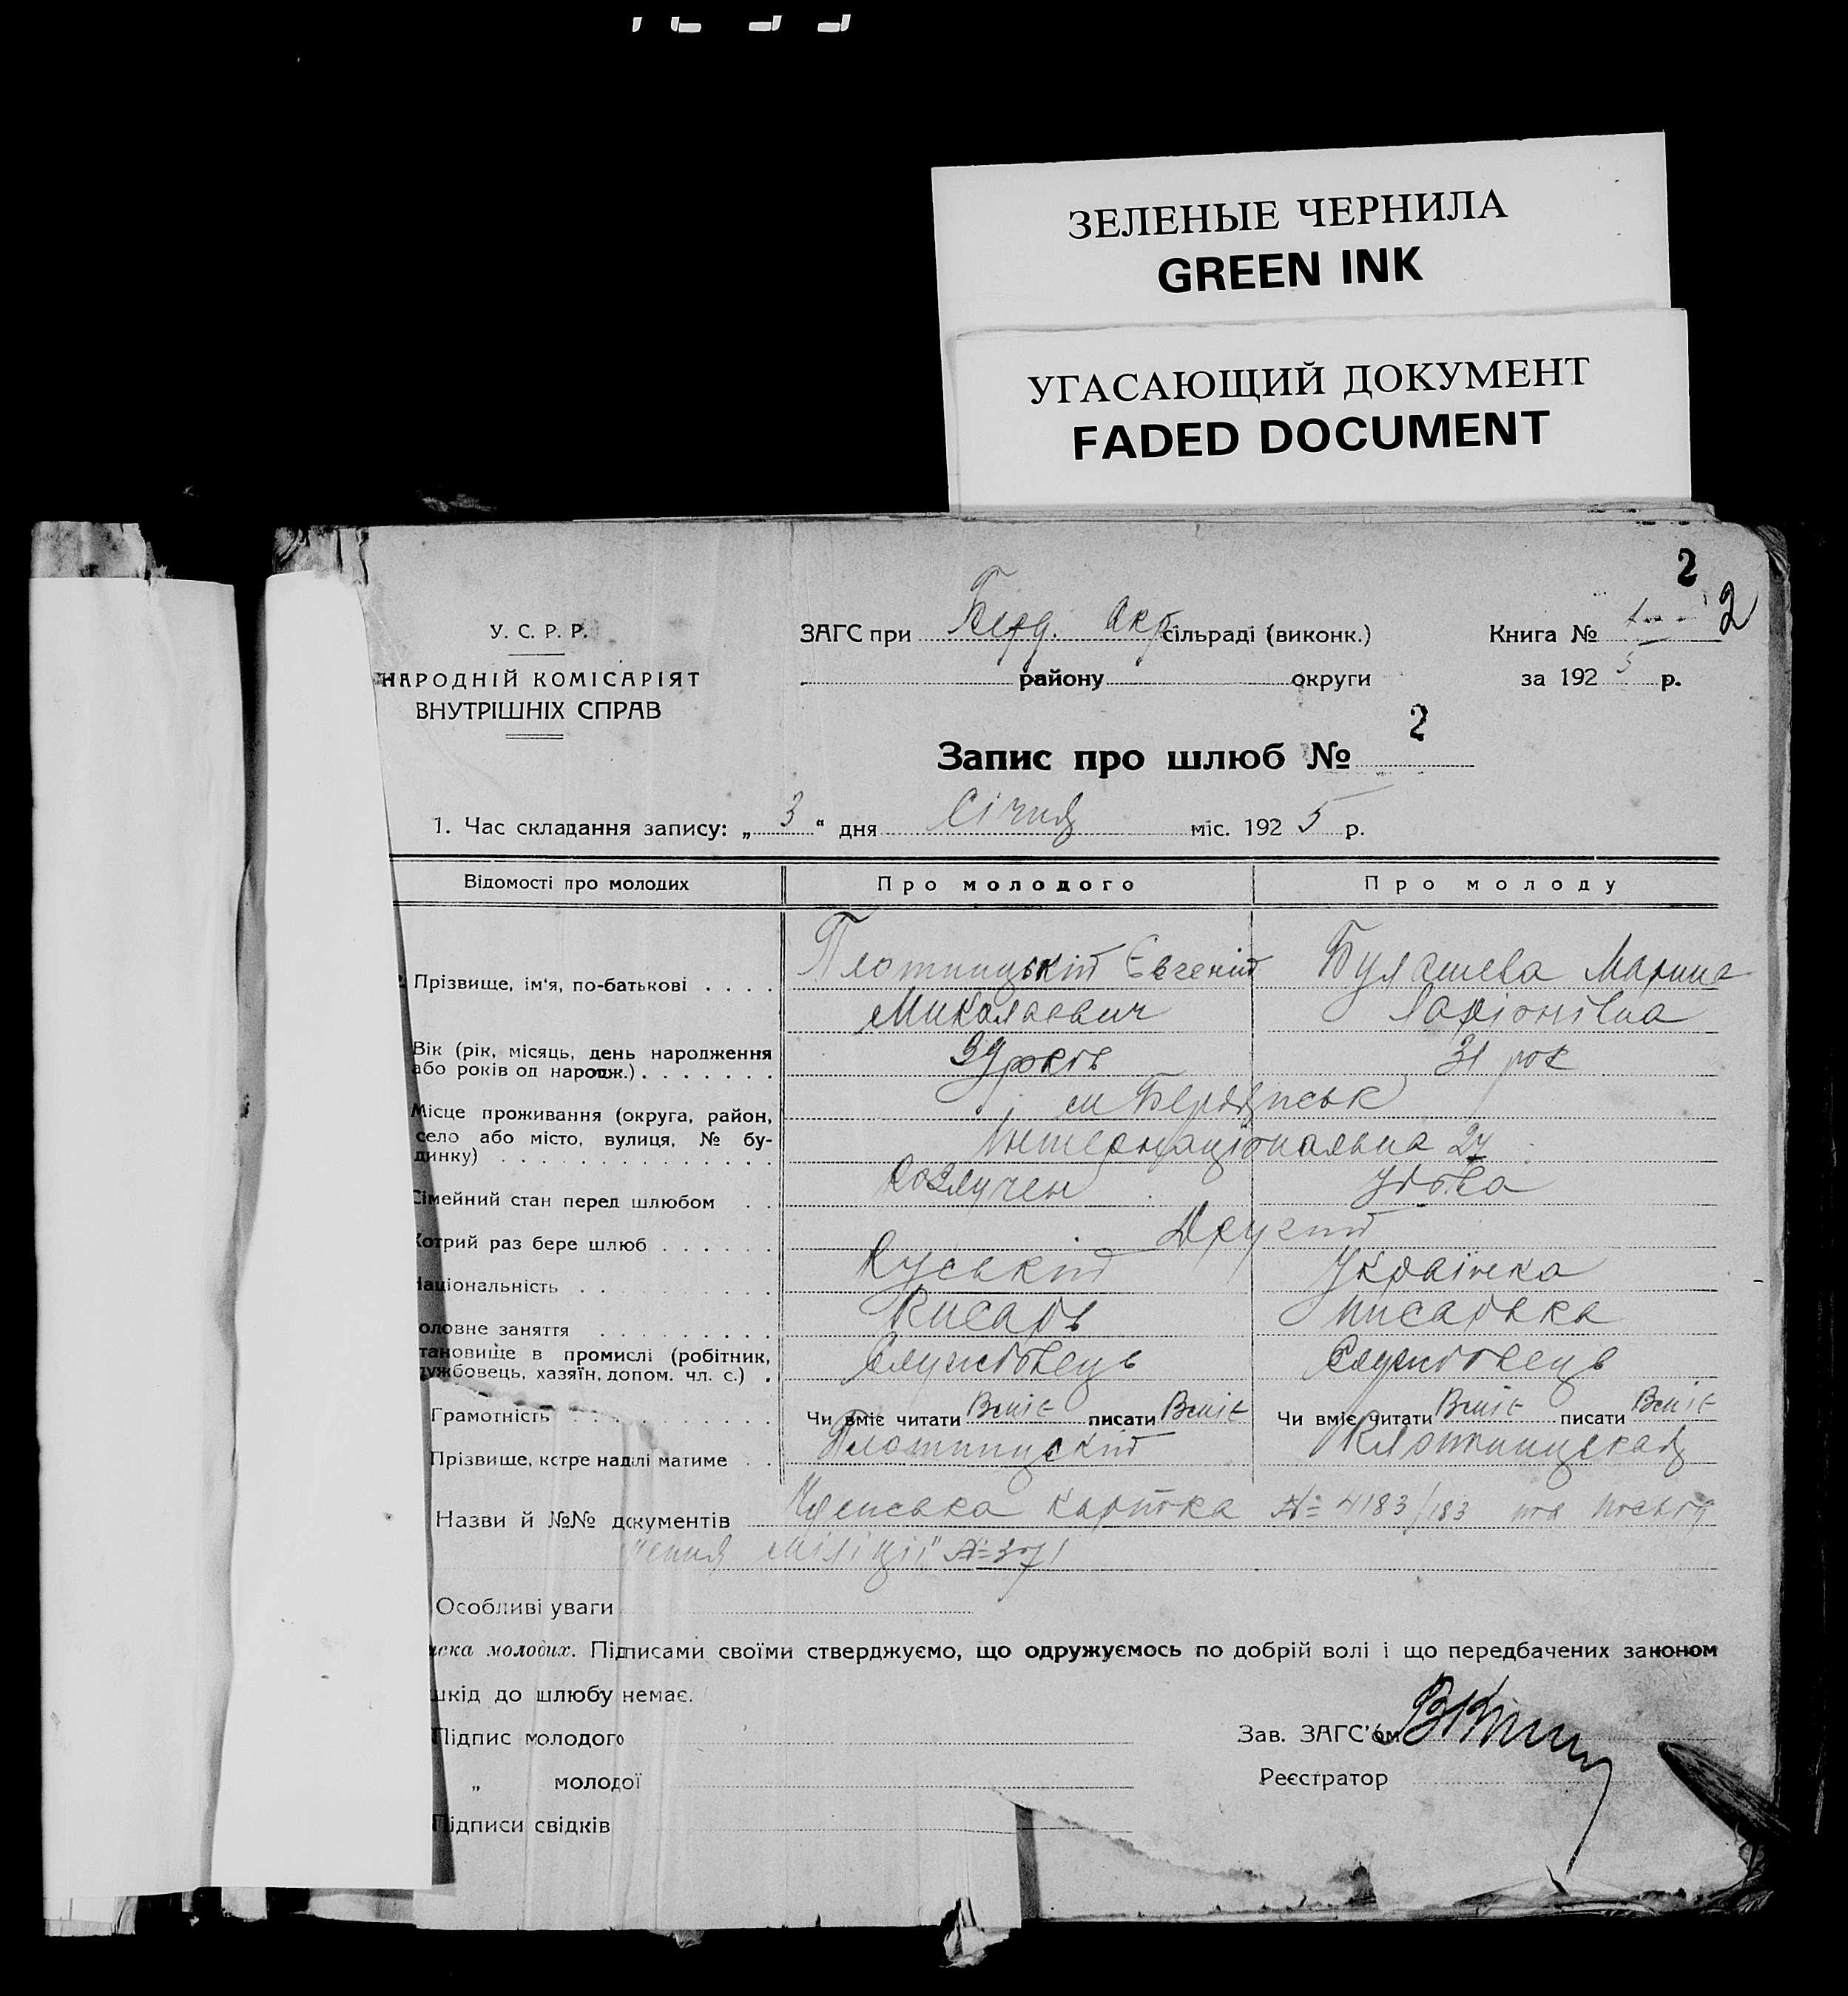 ЗЕЛЕНЫЕ ЧЕРНИЛА
GREEN INK
УГАСАЮЩИЙ ДОКУМЕНТ
FADED DOCUMENT
2
2
У. С. Р. Р.
НАРОДНІЙ КОМІСАРІЯТ
ВНУТРІШНІХ СПРАВ
ЗАГС при Берд. Окр сільраді (виконк.)
району округи
Книга №
за 1925 р.
Запис про шлюб № 2
1. Час складання запису: „ 3 “ дня Січня міс. 1925 р.
Відомості про молодих Про молодого Про молоду
Прізвище, ім'я, по-батькові . . . . Плотницькій Євгеній Булашева Марина
Миколаєвич Ларіонівна
Вік (рік, місяць, день народження
або років од народж.) . . . . . . . років 31 рок
Місце проживання (округа, район, м Бердянськ
село або місто, вулиця, № бу-
динку) . . . . . . . . . . . . . . Інтернаціональна 27
Сімейний стан перед шлюбом . . Розлучен Удова
Котрий раз бере шлюб . . . . . . Другий
Національність . . . . . . . . . . Руській Українка
оловне заняття . . . . . . . . . Писарь писарька
тановище в промислі (робітник,
ужбовець, хазяїн, допом. чл. с.) . Службовець Службовець
Грамотність . . . . . . . . . . Чи вміє читати Вміє писати Вміє Чи вміє читати Вміє писати Вміє
Прізвище, котре надалі матиме . . Плотницкій Плотницькая
Назви й №№ документів Членська картка № 4183/183 та посвід
чення міліції № 371
Особливі уваги
иска молодих. Підписами своїми стверджуємо, що одружуємось по добрій волі і що передбачених законом
шкід до шлюбу немає.
Підпис молодого
„ молодої
Підписи свідків
Зав. ЗАГС'ом
Реєстратор